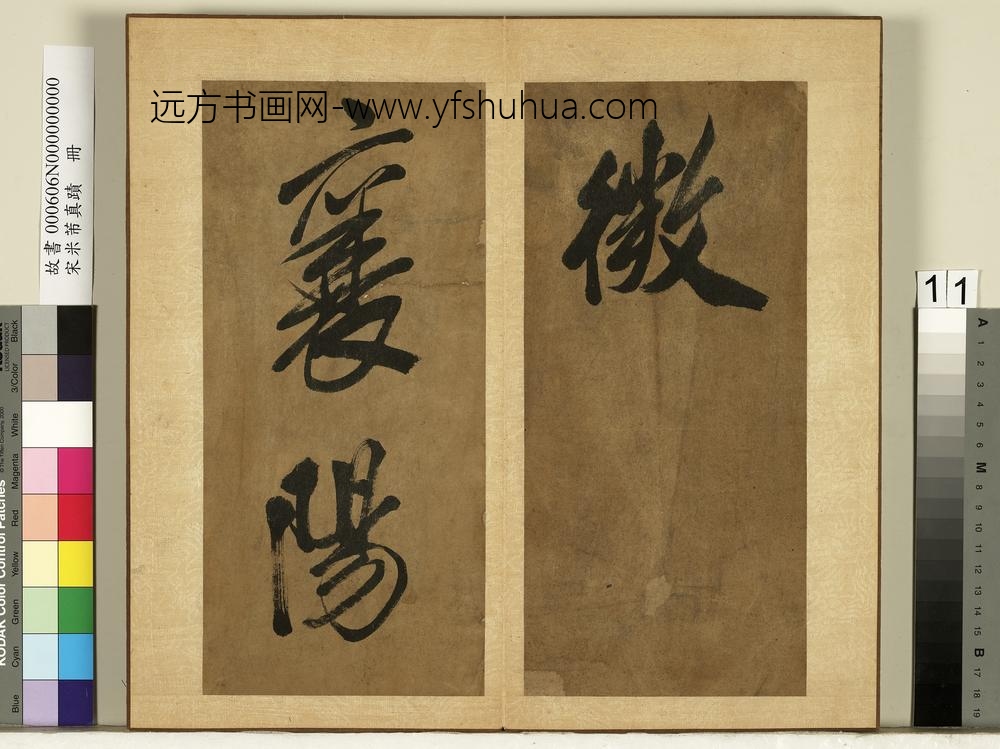 远方书画网-www.yfshuhua.com
徽
襄
陽
故書 000606N000000000
宋米芾真蹟 冊
11
KODAK Color Control Patches
Blue Cyan Green Yellow Red Magenta White 3/Color Black
A 1 2 3 4 5 6 M 8 9 10 11 12 13 14 15 B 17 18 19